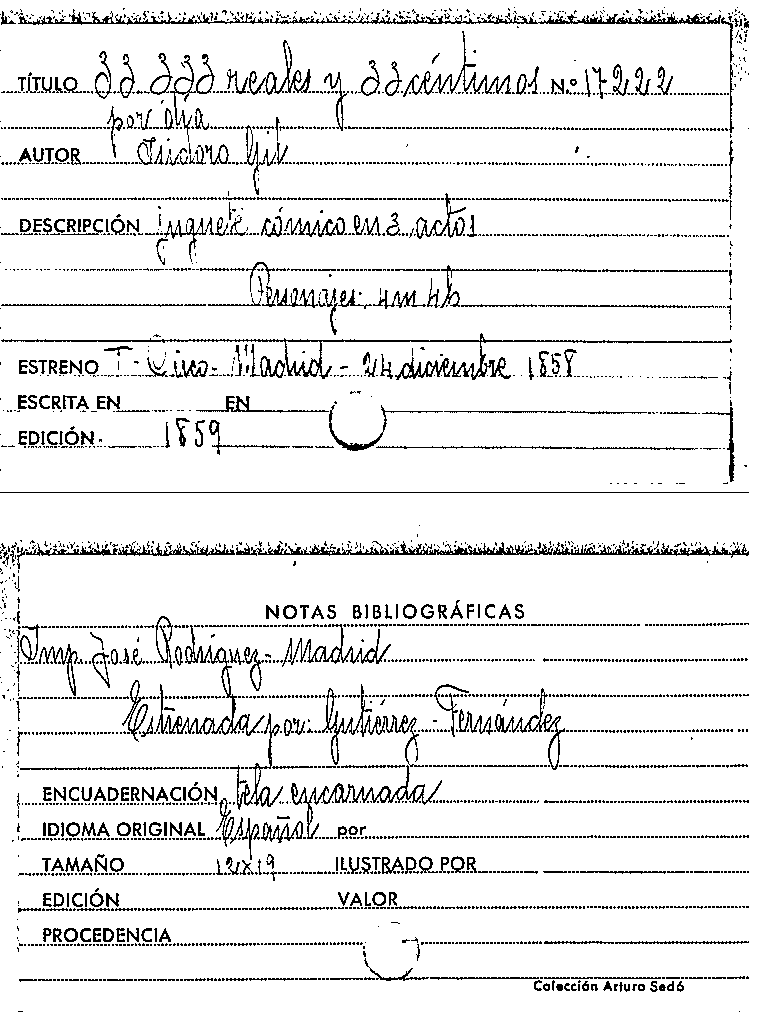 TÍTULO 33 333 reales y 33 céntimos N.º 17222
por día
AUTOR Isidoro Gil
DESCRIPCIÓN juguete cómico en 3 actos
Personajes: 4m 4h
ESTRENO T- Circo- Madrid - 24 diciembre 1858
ESCRITA EN EN
EDICIÓN- 1859
NOTAS BIBLIOGRÁFICAS
Imp. José Rodríguez- Madrid
Estrenada por: Gutiérrez - Fernández
ENCUADERNACIÓN tela encarnada
IDIOMA ORIGINAL Español por
TAMAÑO 12x19 ILUSTRADO POR
EDICIÓN VALOR
PROCEDENCIA
Colección Arturo Sedó